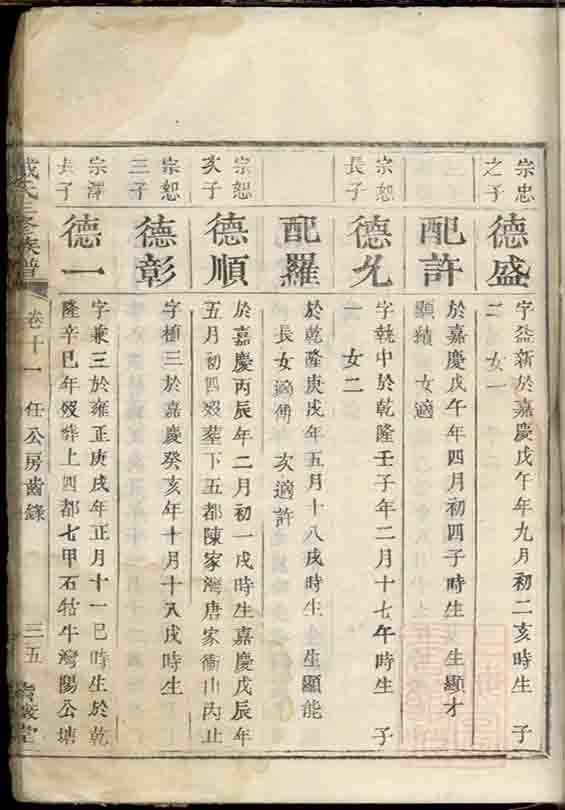 宗忠
之子
德盛
字益新於嘉慶戊午年九月初二亥時生 子
二 女一
配許
於嘉慶戊午年四月初四子時生 生顯才
顯績 女適
宗恕
長子
德允
字執中於乾隆壬子年二月十七午時生 子
一 女二
配羅
於乾隆庚戌年五月十八戌時生 生顯能
長女適傅 次適許
宗恕
次子
德順
於嘉慶丙辰年二月初一戌時生嘉慶戊辰年
五月初四歿葬下五都陳家灣唐家衝山丙止
宗恕
三子
德彰
字植三於嘉慶癸亥年十月十八戌時生
宗澤
長子
德一
字兼三於雍正庚戌年正月十一巳時生於乾
隆辛巳年歿葬上四都七甲石牯牛灣陽公塘
氏三修族譜
卷十一
任公房齒錄
三五
堂